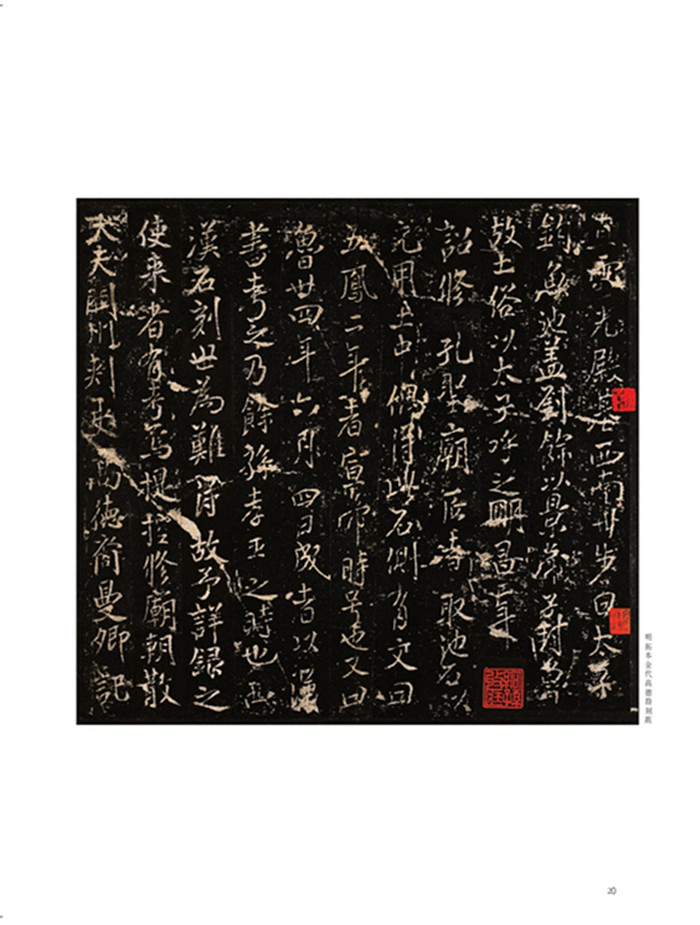 靈光殿基西南卅步曰太子
釣魚池蓋劉餘以景帝子封魯
故土俗以太子呼之明昌二年
詔修 孔聖廟匠者取池石以
充用土中偶得此石側有文曰
五鳳二年者宣帝時号也又曰
魯卅四年六月四日成者以漢
書考之乃餘孫孝王之時也西
漢石刻世為難得故予詳錄之
使來者有考焉提控修廟朝散
大夫開州刺史高德裔曼卿記
明拓本金代高德裔刻跋
20